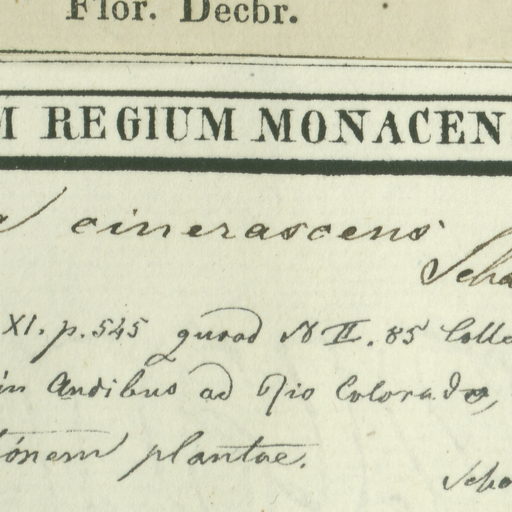 Flor. Decbr.
M REGIUM MONACENS
cinerascens
Scha
XI. p. 545 quoad N II. 85 Colle
in Andibus ad Rio Colorado,
tionem plantae.
Scha